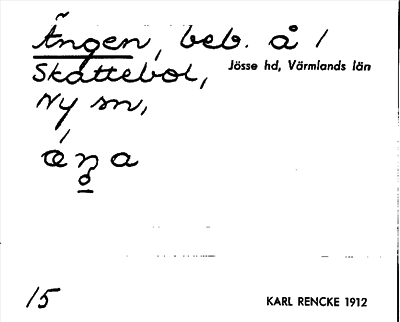 Ängen, beb. å /
Skattebol, Jösse hd, Värmlands län
Ny sn,
15
KARL RENCKE 1912